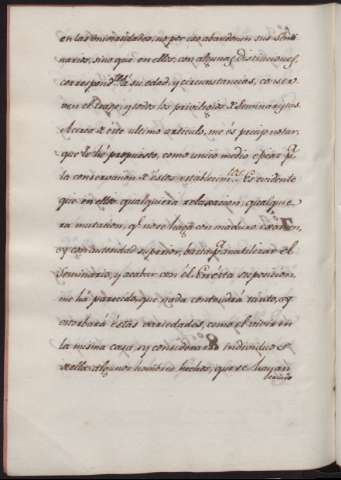 en las Universidades, no por eso abandonen sus Semi-
narios, sino que en ellos con algunas distinciones,
correspond.tes a su edad, y circunstancias, conser-
ven el trage, y todos los privilegios de Seminaristas.
Acerca de este ultimo articulo, me és preciso notar,
que lo hé propuesto, como unico medio
la conservacion de estos establecim.tos Es evidente
que en ellos qualquiera relaxacion, qualquie-
ra mutacion, q.e no se haga con maduro examen,
y con autoridad superior, basta p.a inutilizar el
Seminario, y acabar con él. En ésta suposicion,
me há parecido, que nada contendrá tanto, y
estorbará éstas variedades, como el vivir en
la misma casa, y considerarse individuos
de ella algunos hombres hechos, que se hayan